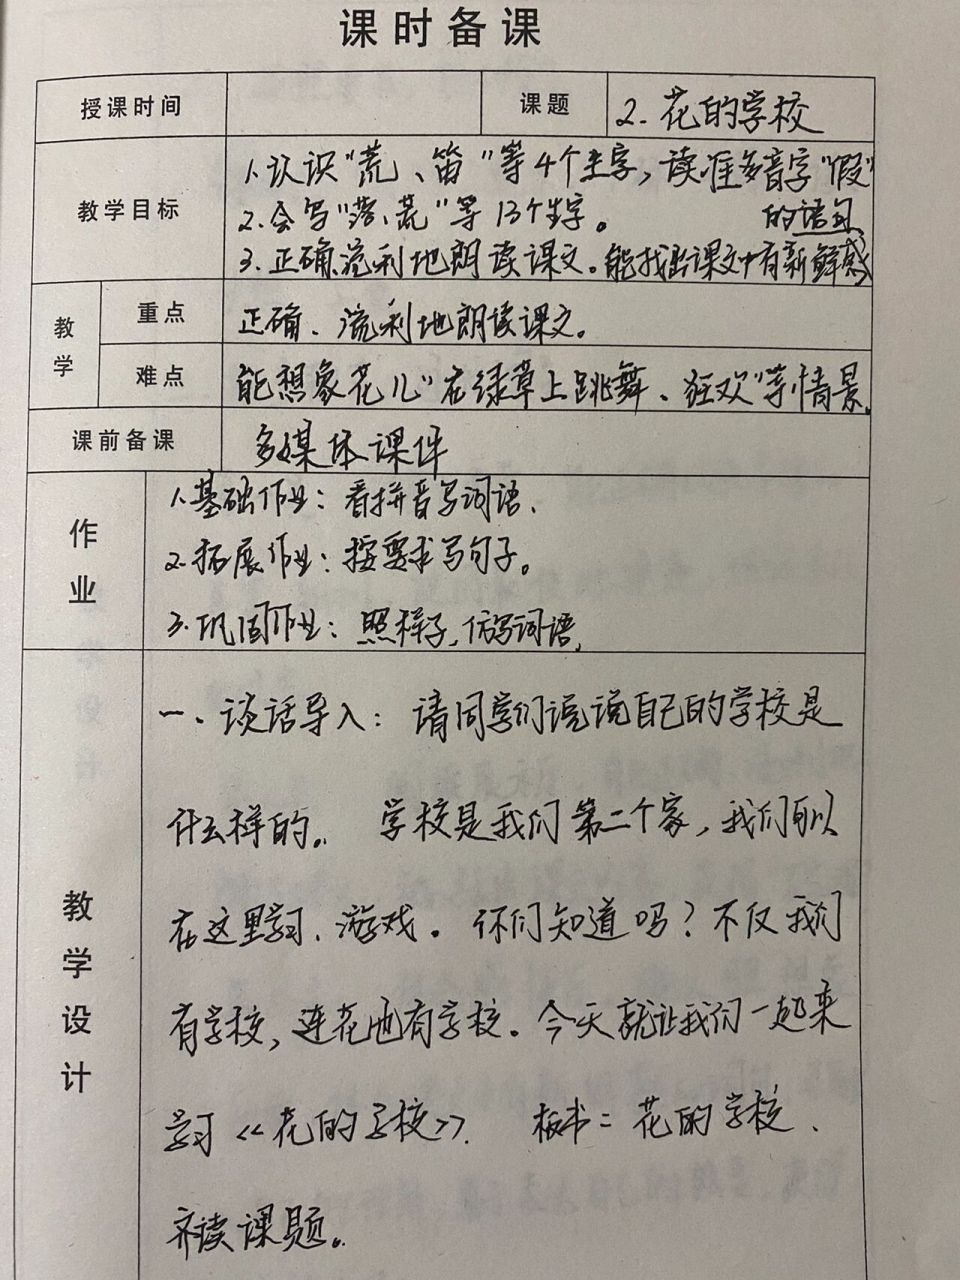 课时备课
授课时间 课题 2. 花的学校
教学目标
1.认识“荒、笛”等4个生字，读准多音字“假”
2.会写“落、荒”等13个生字。
3.正确、流利地朗读课文。能找出课文中有新鲜感
的语句
教学
重点 正确、流利地朗读课文。
难点 能想象花儿“在绿草上跳舞、狂欢”等情景.
课前备课 多媒体课件
作业
1.基础作业：看拼音写词语.
2.拓展作业：按要求写句子。
3.巩固作业：照样子,仿写词语,
教学设计
一、谈话导入：请同学们说说自己的学校是
什么样的。 学校是我们第二个家，我们可以
在这里学习、游戏。你们知道吗？不仅我们
有学校，连花也有学校。今天就让我们一起来
学习《花的学校》. 板书：花的学校.
齐读课题。